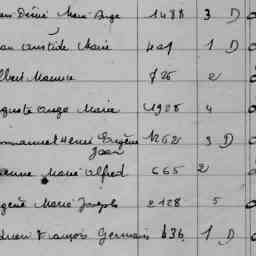 Désiré Marie Ange 1488 3 D
Aristide Marie 401 1 D
Albert Maurice 726 2
Auguste Ange Marie 1928 4
Emmanuel Henri Eugène 1262 3 D
Jean
Etienne Marie Alfred 665 2
Eugène Marie Joseph 2128 5
Adrien François Germain 636 1 D